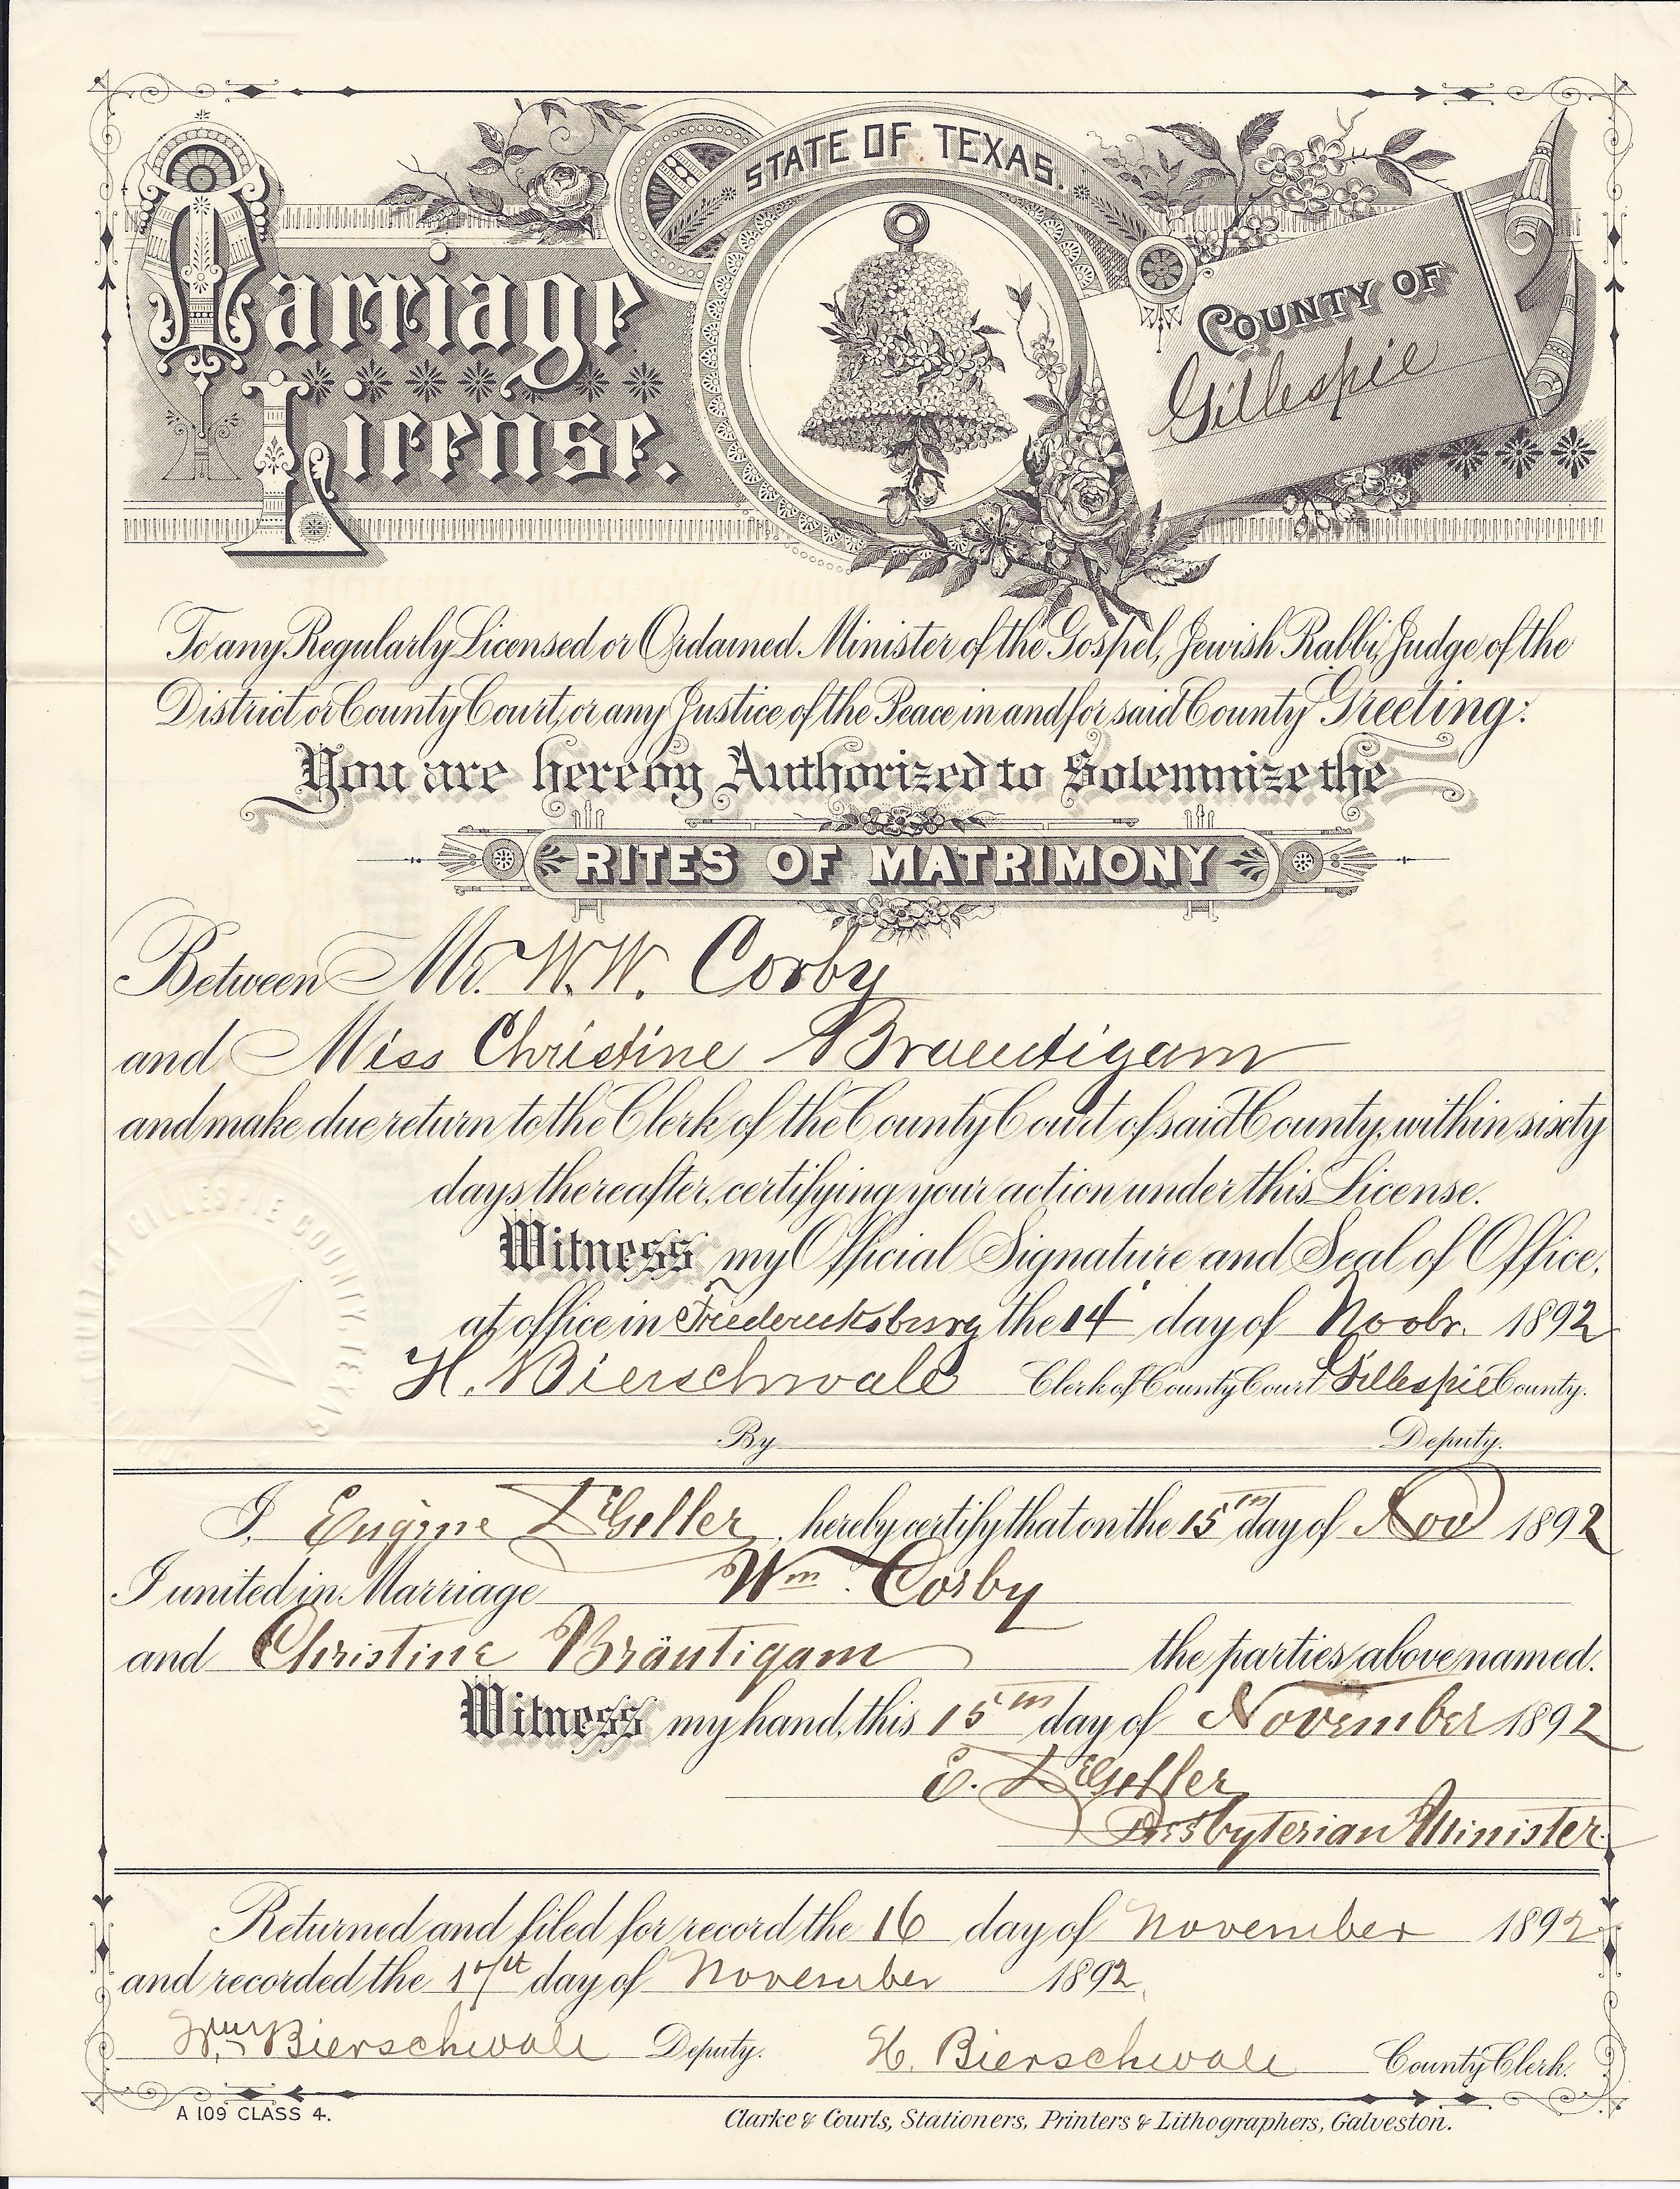 STATE OF TEXAS.
Marriage
License.
COUNTY OF
Gillespie
To any Regularly Licensed or Ordained Minister of the Gospel, Jewish Rabbi, Judge of the
District or County Court, or any Justice of the Peace in and for said County Greeting:
You are hereby Authorized to Solemnize the
RITES OF MATRIMONY
Between Mr. W.W. Corby
and Miss Christine Braeutigam
and make due return to the Clerk of the County Court of said County, within sixty
days thereafter, certifying your action under this License.
Witness my Official Signature and Seal of Office,
at office in Fredericksburg the 14 day of Novbr. 1892
H. Bierschwale Clerk of County Court Gillespie County.
By Deputy.
I, Eugene, hereby certify that on the 15th day of Nov 1892
I united in Marriage Wm. Corby
and Christine Bräutigam the parties above named.
Witness my hand, this 15th day of November 1892
E.
Presbyterian Minister.
Returned and filed for record the 16 day of November 1892
and recorded the day of November 1892.
Wm. Bierschwale Deputy. H. Bierschwale County Clerk.
A 109 CLASS 4.
Clarke & Courts, Stationers, Printers & Lithographers, Galveston.
GILLESPIE COUNTY, TEXAS